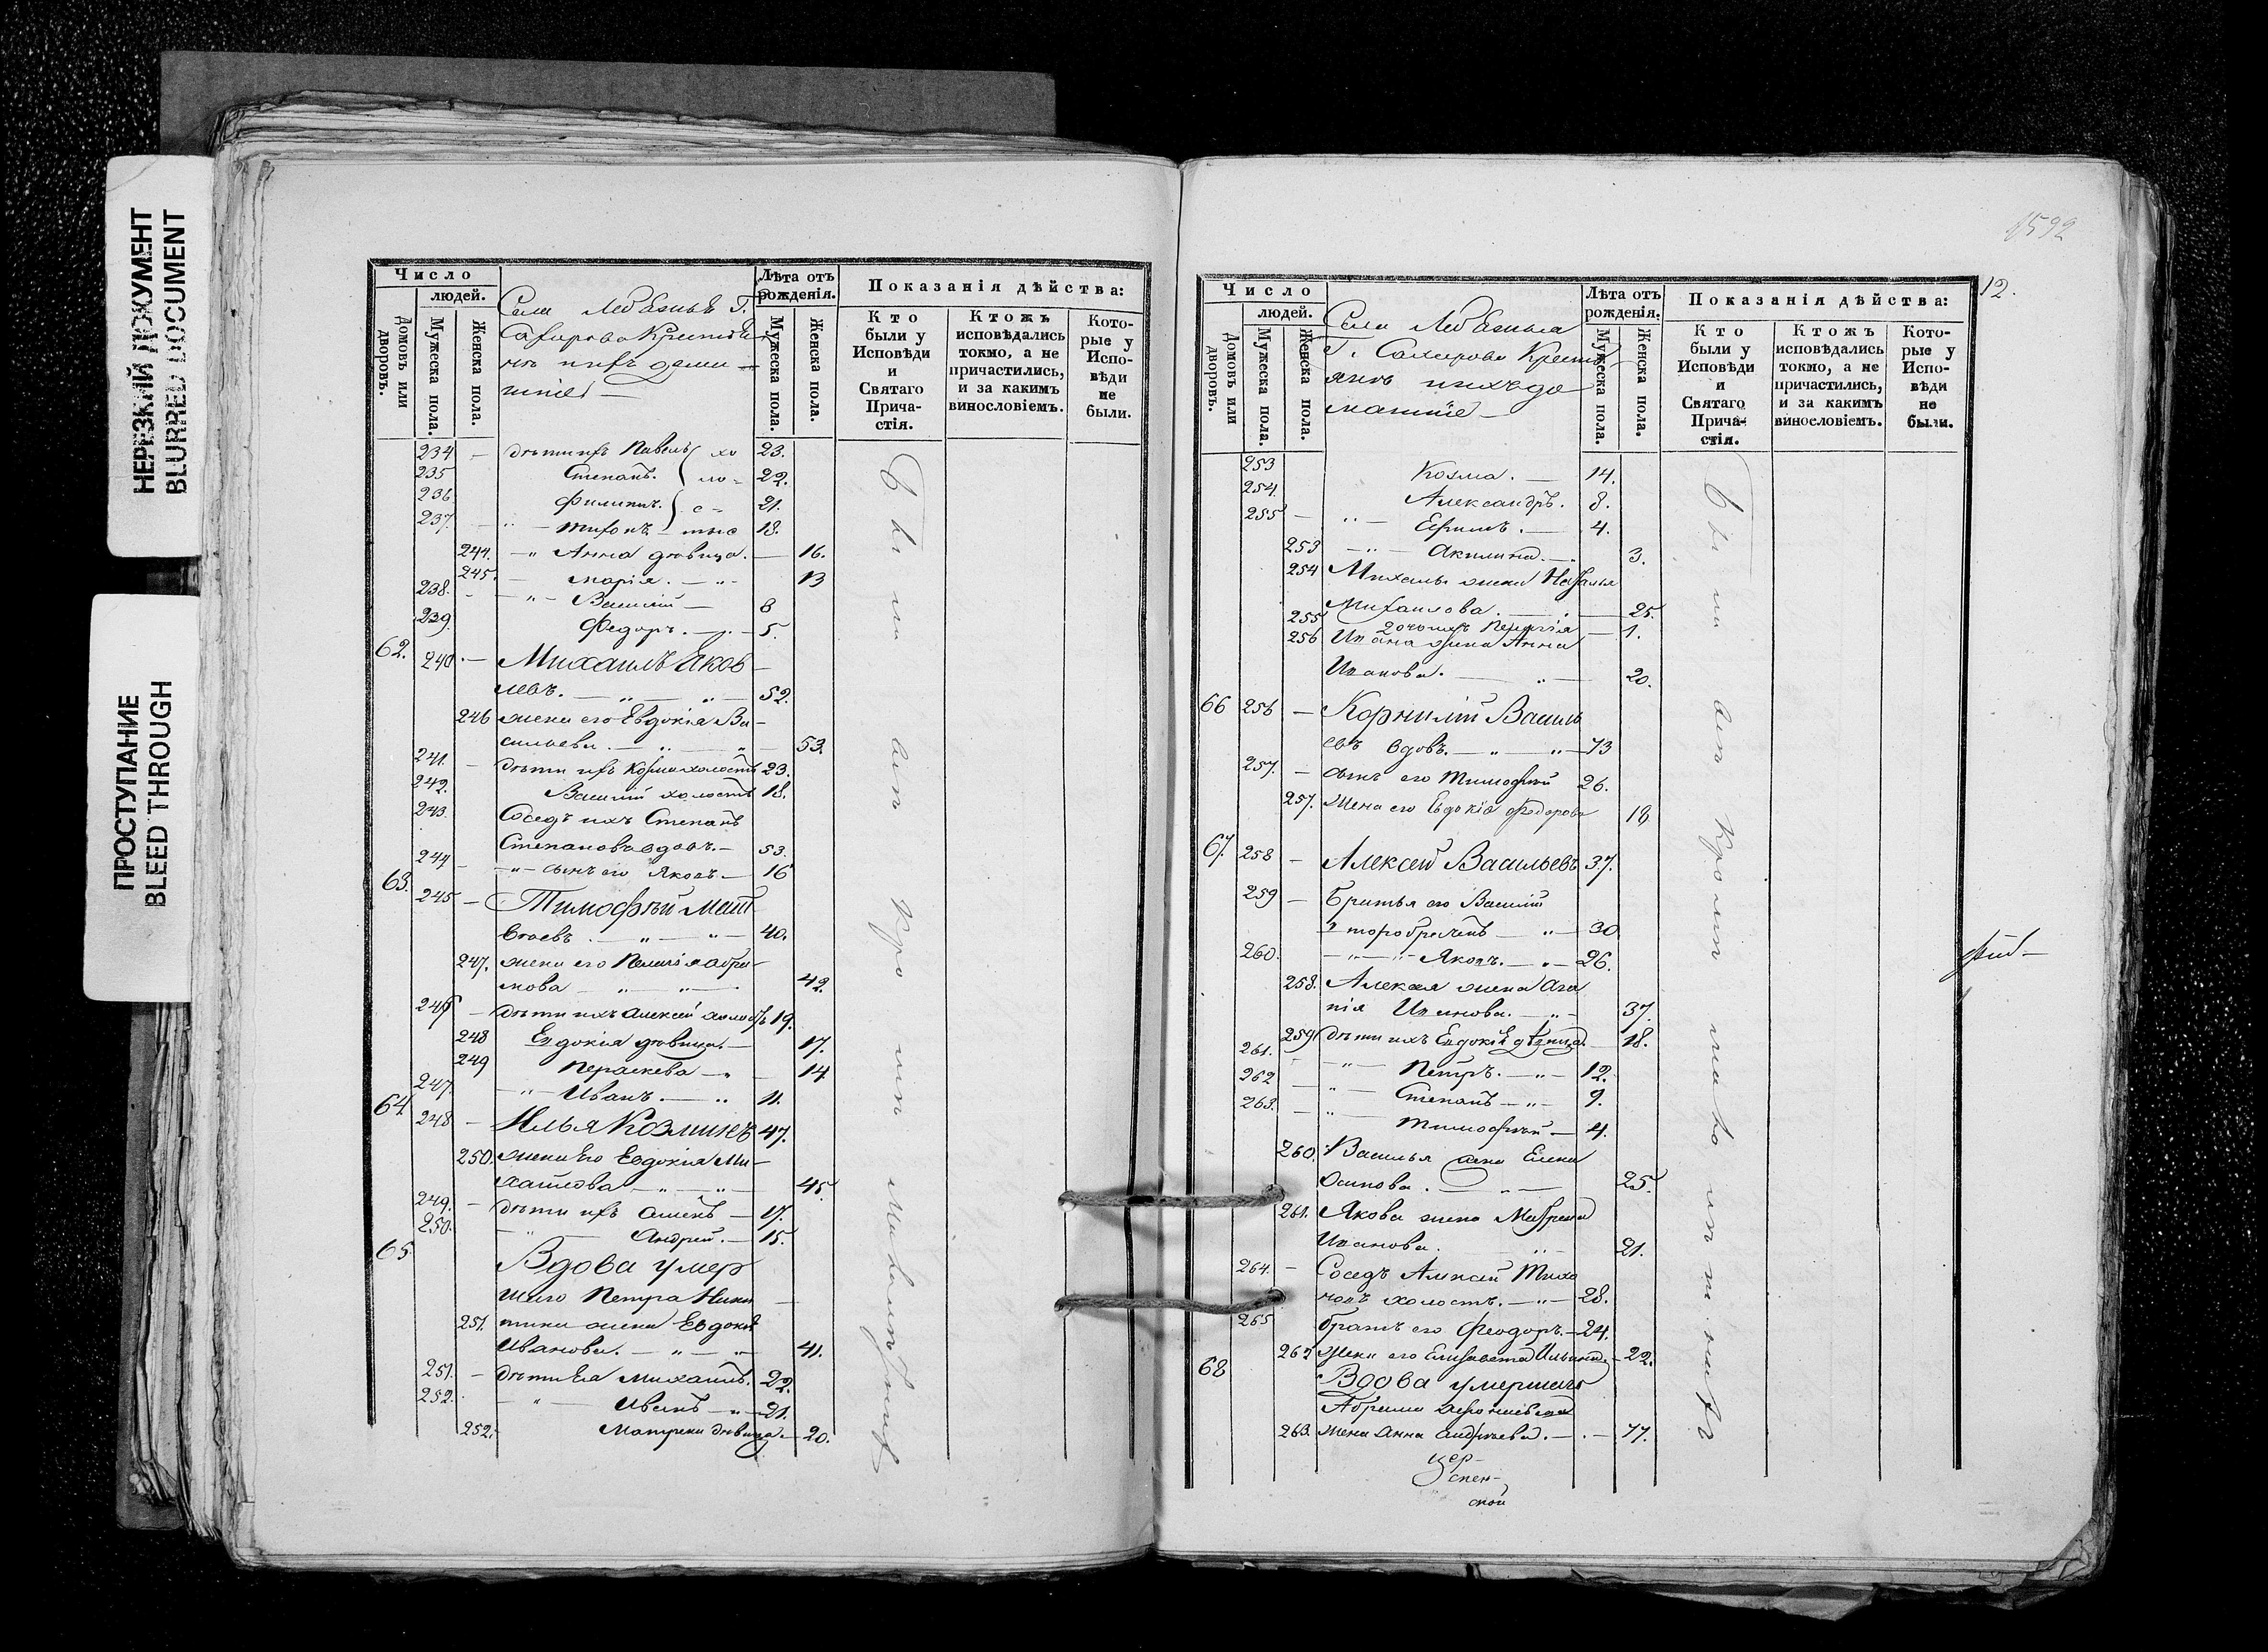 НЕРЕЗКИЙ ДОКУМЕНТ
BLURRED DOCUMENT
ПРОСТУПАНИЕ
BLEED THROUGH
Число
людей.
Домовъ или дворовъ.
Мужеска пола.
Женска пола.
Лѣта отъ рожденія.
Мужеска пола.
Женска пола.
Показанія дѣйства:
Кто были у Исповѣди и Святаго Причастія.
Ктожъ исповѣдались токмо, а не причастились, и за какимъ винословіемъ.
Которые у Исповѣди не были.
234 — дѣти ихъ Павелъ хо 23.
235 Степанъ. ло- 22.
236 Филиппъ. с- 21.
237. Тихонъ — тые 18.
244. — Анна дѣвица. — 16.
245. — Марія. — 13
238. — Василій — 8
239. Федоръ. — 5.
62. 240. — Михаилъ Яков
левъ. — 52.
246 жена его Евдокія Ва-
сильева. — 53.
241. — дѣти ихъ Козма холостъ 23.
242. Василій холостъ 18.
243. Соседъ ихъ Степанъ
Степановъ вдовъ. — 53.
244 — сынъ его Яковъ — 16
63. 245 — Тимофѣй Мат
веевъ. — 40.
247. жена его Пелагія Абра-
мова — 42.
246 — дѣти ихъ Алексѣй холостъ 19.
248 Евдокія дѣвица. — 17.
249 Параскева — 14
247. — Иванъ. — 11.
64. 248 — Илья Козминъ 47.
250. жена Его Евдокія Ми-
хайлова — 45.
249. — дѣти ихъ — 17.
250. Андрей. — 15.
65. Вдова умер
шаго Петра Ники
251. тина жена Евдокія
Иванова. — 41.
251. — дѣти Ея Михаилъ. 22.
252. — Иванъ — 21.
252. Матрена дѣвица. — 20.
1592
12.
Число
людей.
Домовъ или дворовъ.
Мужеска пола.
Женска пола.
Лѣта отъ рожденія.
Мужеска пола.
Женска пола.
Показанія дѣйства:
Кто были у Исповѣди и Святаго Причастія.
Ктожъ исповѣдались токмо, а не причастились, и за какимъ винословіемъ.
Которые у Исповѣди не были.
253 Козма. — 14.
254. Александръ. 8.
255 — Ефимъ. — 4.
253 — Акилина. — 3.
254 Михаилы жена Наталья
Михаилова. — 25.
255 дочь ихъ Пелагія — 1.
256 Ивана жена Анна
Иванова. — 20.
66 256 — Корнилій Василь
евъ вдовъ. — 73
257. — сынъ его Тимофѣй 26.
257. Жена его Евдокія Федорова 18
67. 258 — Алексѣй Васильевъ 37.
259 — Братья его Василій
2торобрачный — 30
260. — Яковъ. — 26.
258. Алексея жена Ага
пія Иванова. — 37.
259 дѣти ихъ Евдокія дѣвица. 18.
261. — Петръ. — 12.
262 — Степанъ — 9.
263. — Тимофѣй — 4.
260. Василья жена Елена
Осипова. — 25.
261. Якова жена Матрена
Иванова. 21.
264. — Соседъ Алексѣй Тихо
новъ холостъ. — 28.
265 братъ его Феодоръ. — 24.
262 Жена его Елисавета Ильина. — 22.
68 Вдова умершаго
Абрама
263. жена Анна Андреева. — 77.